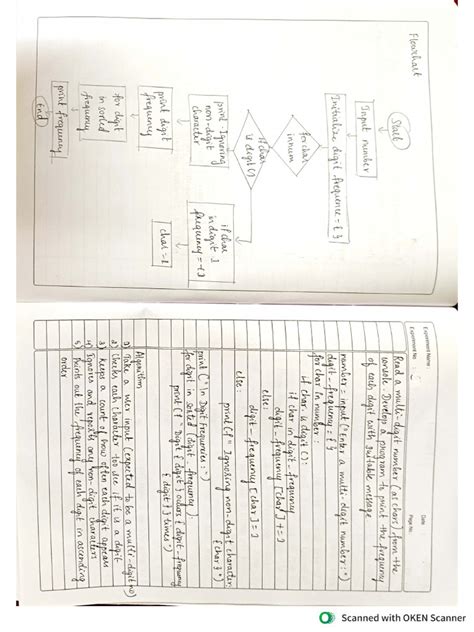 Flowchart
Start
Input number
Initialize digit_frequence = { }
for char
in num
if char
is digit()
print Ignoring
non-digit
character
if char
in digit_]
frequency = {}
char = 1
print digit
frequency
for digit
in sorted
frequency
print frequency
End
Experiment Name :
Date
Experiment No. : 6
Page No.
Read a multi-digit number (as chars) from the
console. Develop a program to print the frequency
of each digit with suitable message
number = input ("Enter a multi-digit number:")
digit_frequency = { }
for char in number :
if char.is digit ():
if char in digit_frequency
digit_frequency [char] += 1
else:
digit_frequency [char] = 1
else:
print (f" Ignoring non-digit character:
{char}")
print ("\n Digit Frequencies:")
for digit in sorted (digit_frequency):
print (f" Digit {digit} occurs {digit_frequency
[digit]} times")
Algorithm
1) Take a user input (expected to be a multi-digit no)
2) Checks each character too see if it is a digit
3) keeps a count of how often each digit appears
4) Ignores and reports any non-digit characters
5) Prints out the frequency of each digit in ascending
order
Scanned with OKEN Scanner